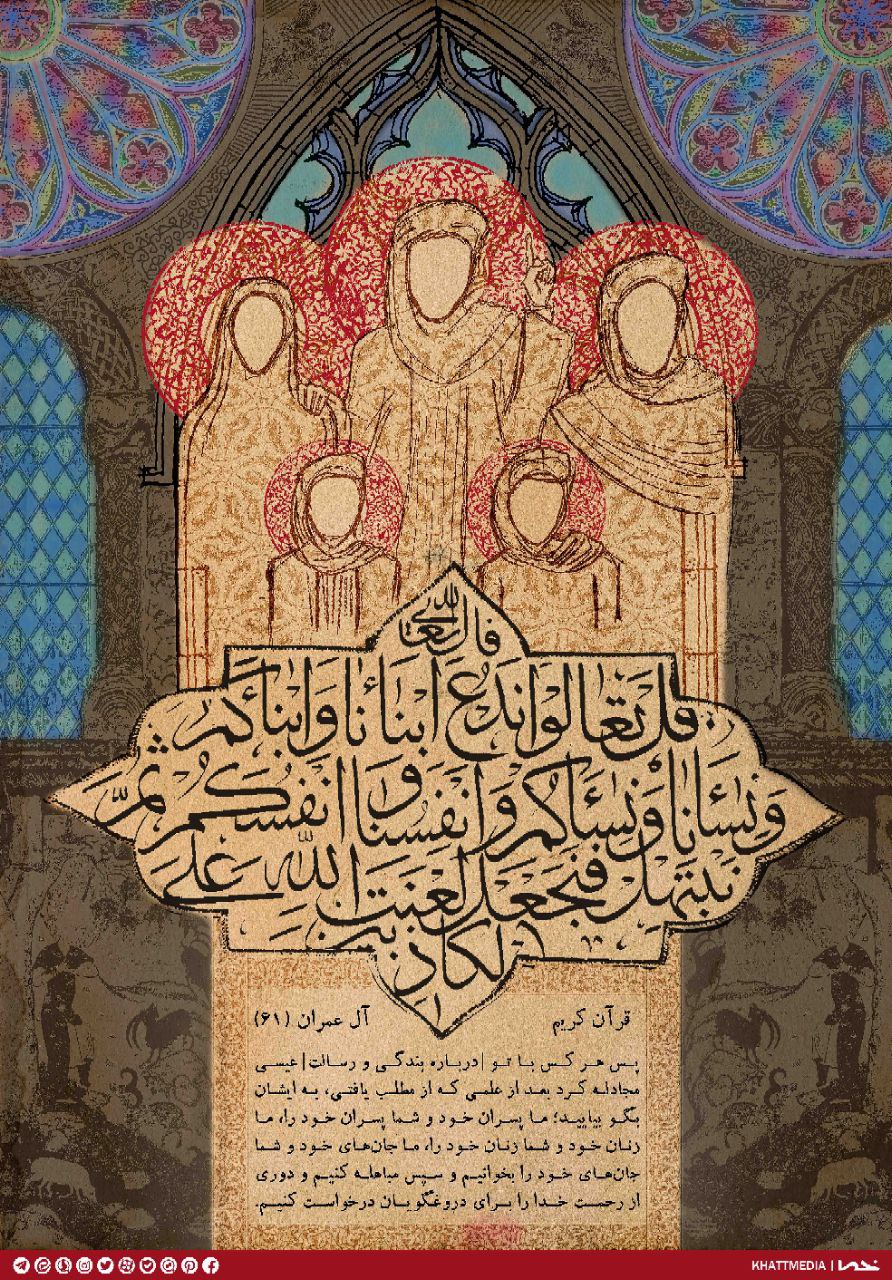 قال الله تعالی
قل تعالوا ندع ابنائنا وابنائکم
ونسائنا ونسائکم وانفسنا وانفسکم ثمَّ
نبتهل فنجعل لعنت الله علی
الکاذبین
قرآن کریم آل عمران (۶۱)
پس هر کس با تو |درباره بندگی و رسالت| عیسی
مجادله کرد بعد از علمی که از مطلب یافتی، به ایشان
بگو بیایید؛ ما پسران خود و شما پسران خود را، ما
زنان خود و شما زنان خود را، ما جان‌های خود و شما
جان‌های خود را بخوانیم و سپس مباهله کنیم و دوری
از رحمت خدا را برای دروغگویان درخواست کنیم.
KHATTMEDIA | خط